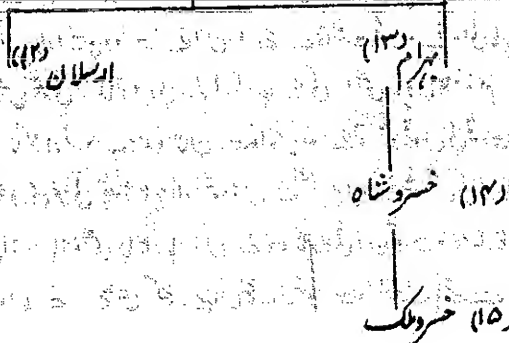 بہرام (۱۳) ارسلان (۱۲)
(۱۴) خسروشاہ
(۱۵) خسروملک